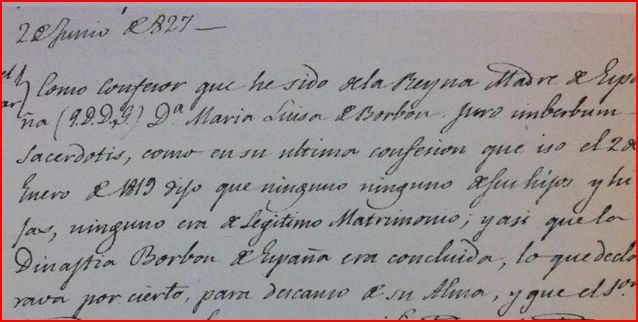 2 de Junio de 1827 –
Como Confesor que he sido de la Reyna Madre de Espa
ña (q.D.D.g.) Dª Maria Luisa de Borbon. Juro imberbum
Sacerdotis, como en su ultima confesion que iso el 2 de
Enero de 1819 dijo que ninguno ninguno de sus hijos y hi
jas, ninguno era de legitimo Matrimonio; y asi que la
Dinastia Borbon de España era concluida, lo que decla
rava por cierto, para descanso de su Alma, y que el Sor.